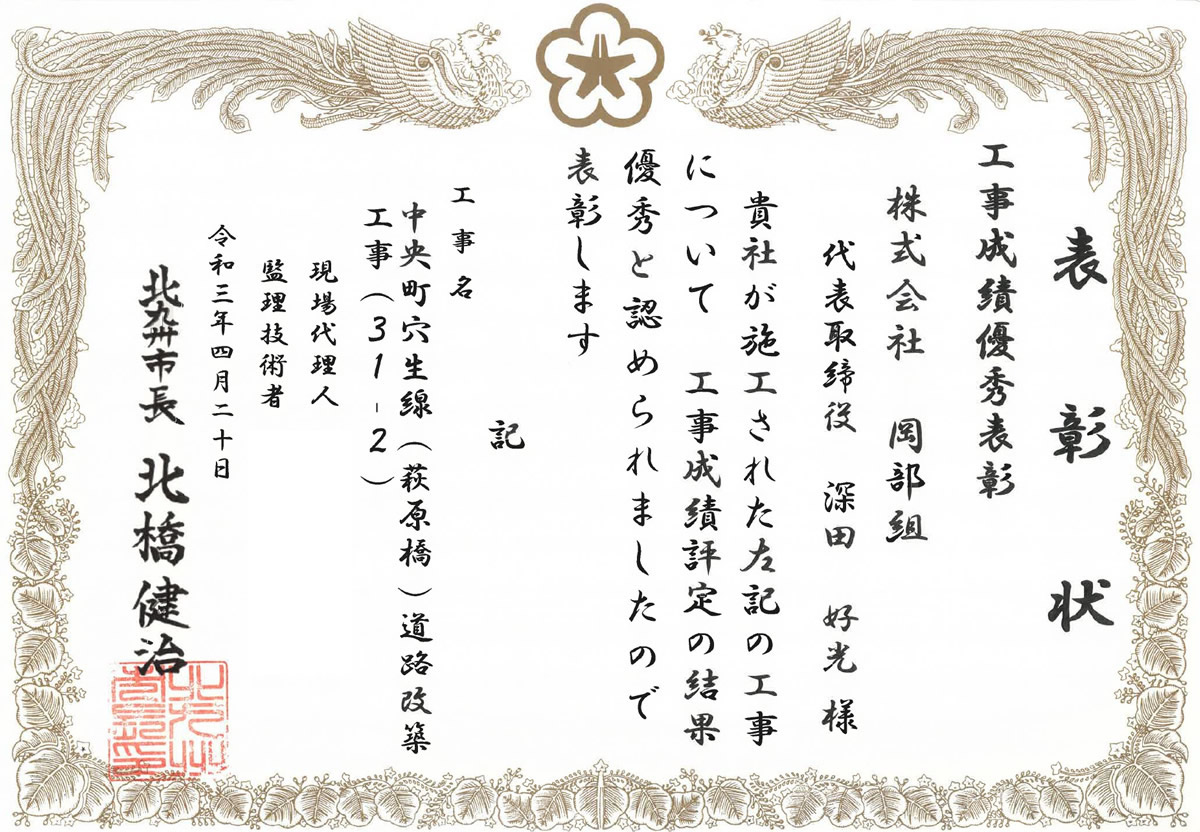 表彰状
工事成績優秀表彰
株式会社 岡部組
代表取締役 深田 好光 様
貴社が施工された左記の工事
について 工事成績評定の結果
優秀と認められましたので
表彰します
記
工事名
中央町穴生線(萩原橋)道路改築
工事(31-2)
現場代理人
監理技術者
令和三年四月二十日
北九州市長 北橋健治